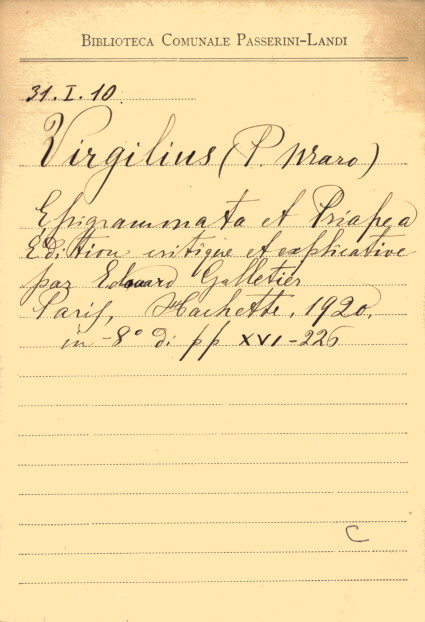 BIBLIOTECA COMUNALE PASSERINI-LANDI
31.I.10.
Virgilius (P. Maro)
Epigrammata et Priapea
Edittion critique et explicative
par Edouard Galletier
Paris, Hachette, 1920,
in -8° di pp XVI-226
C